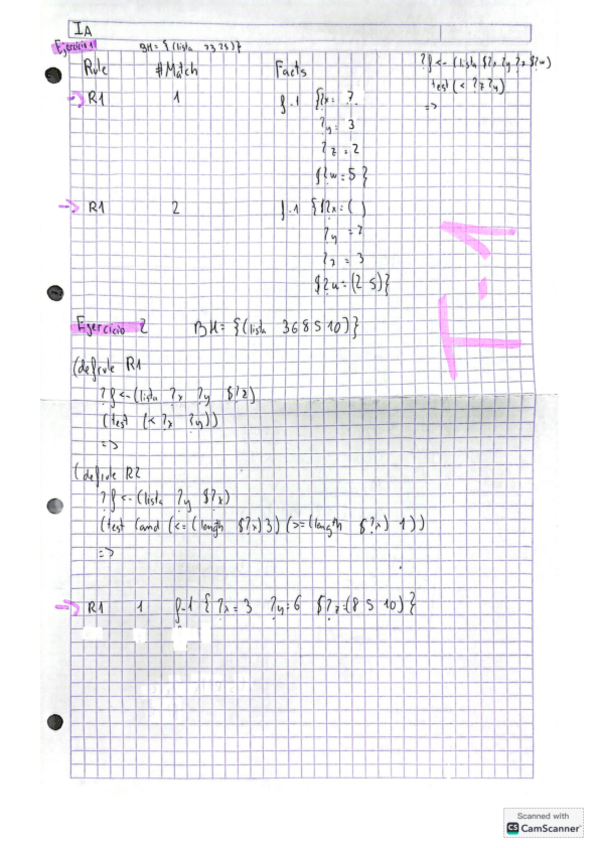 IA
Ejercicio 1 BH = {(lista 7 3 2 5)}
Rule #Match Facts
?f <- (lista $?x ?y ?z $?w)
test (< ?z ?y)
=>
→ R1 1 f-1 {?x = 7
?y = 3
?z = 2
$?w = 5}
→ R1 2 f-1 {$?x = ( )
?y = 7
?z = 3
$?w = (2 5)}
T-1
Ejercicio 2 BH = {(lista 3 6 8 5 10)}
(defrule R1
?f <- (lista ?x ?y $?z)
(test (< ?x ?y))
=>
(defrule R2
?f <- (lista ?y $?x)
(test (and (<= (length $?x) 3) (>= (length $?x) 1))
=>
→ R1 1 f-1 {?x = 3 ?y = 6 $?z = (8 5 10)}
Scanned with
CS CamScanner